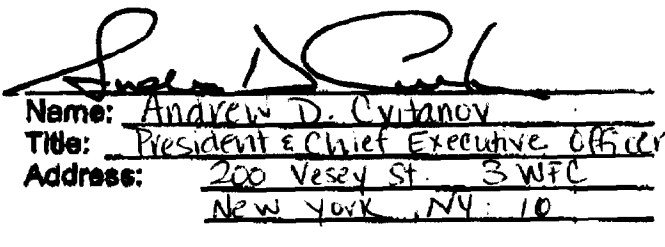 Name: Andrew D. Cvitanov
Title: President & Chief Executive Officer
Address: 200 Vesey St. 3 WFC
New York, NY: 10